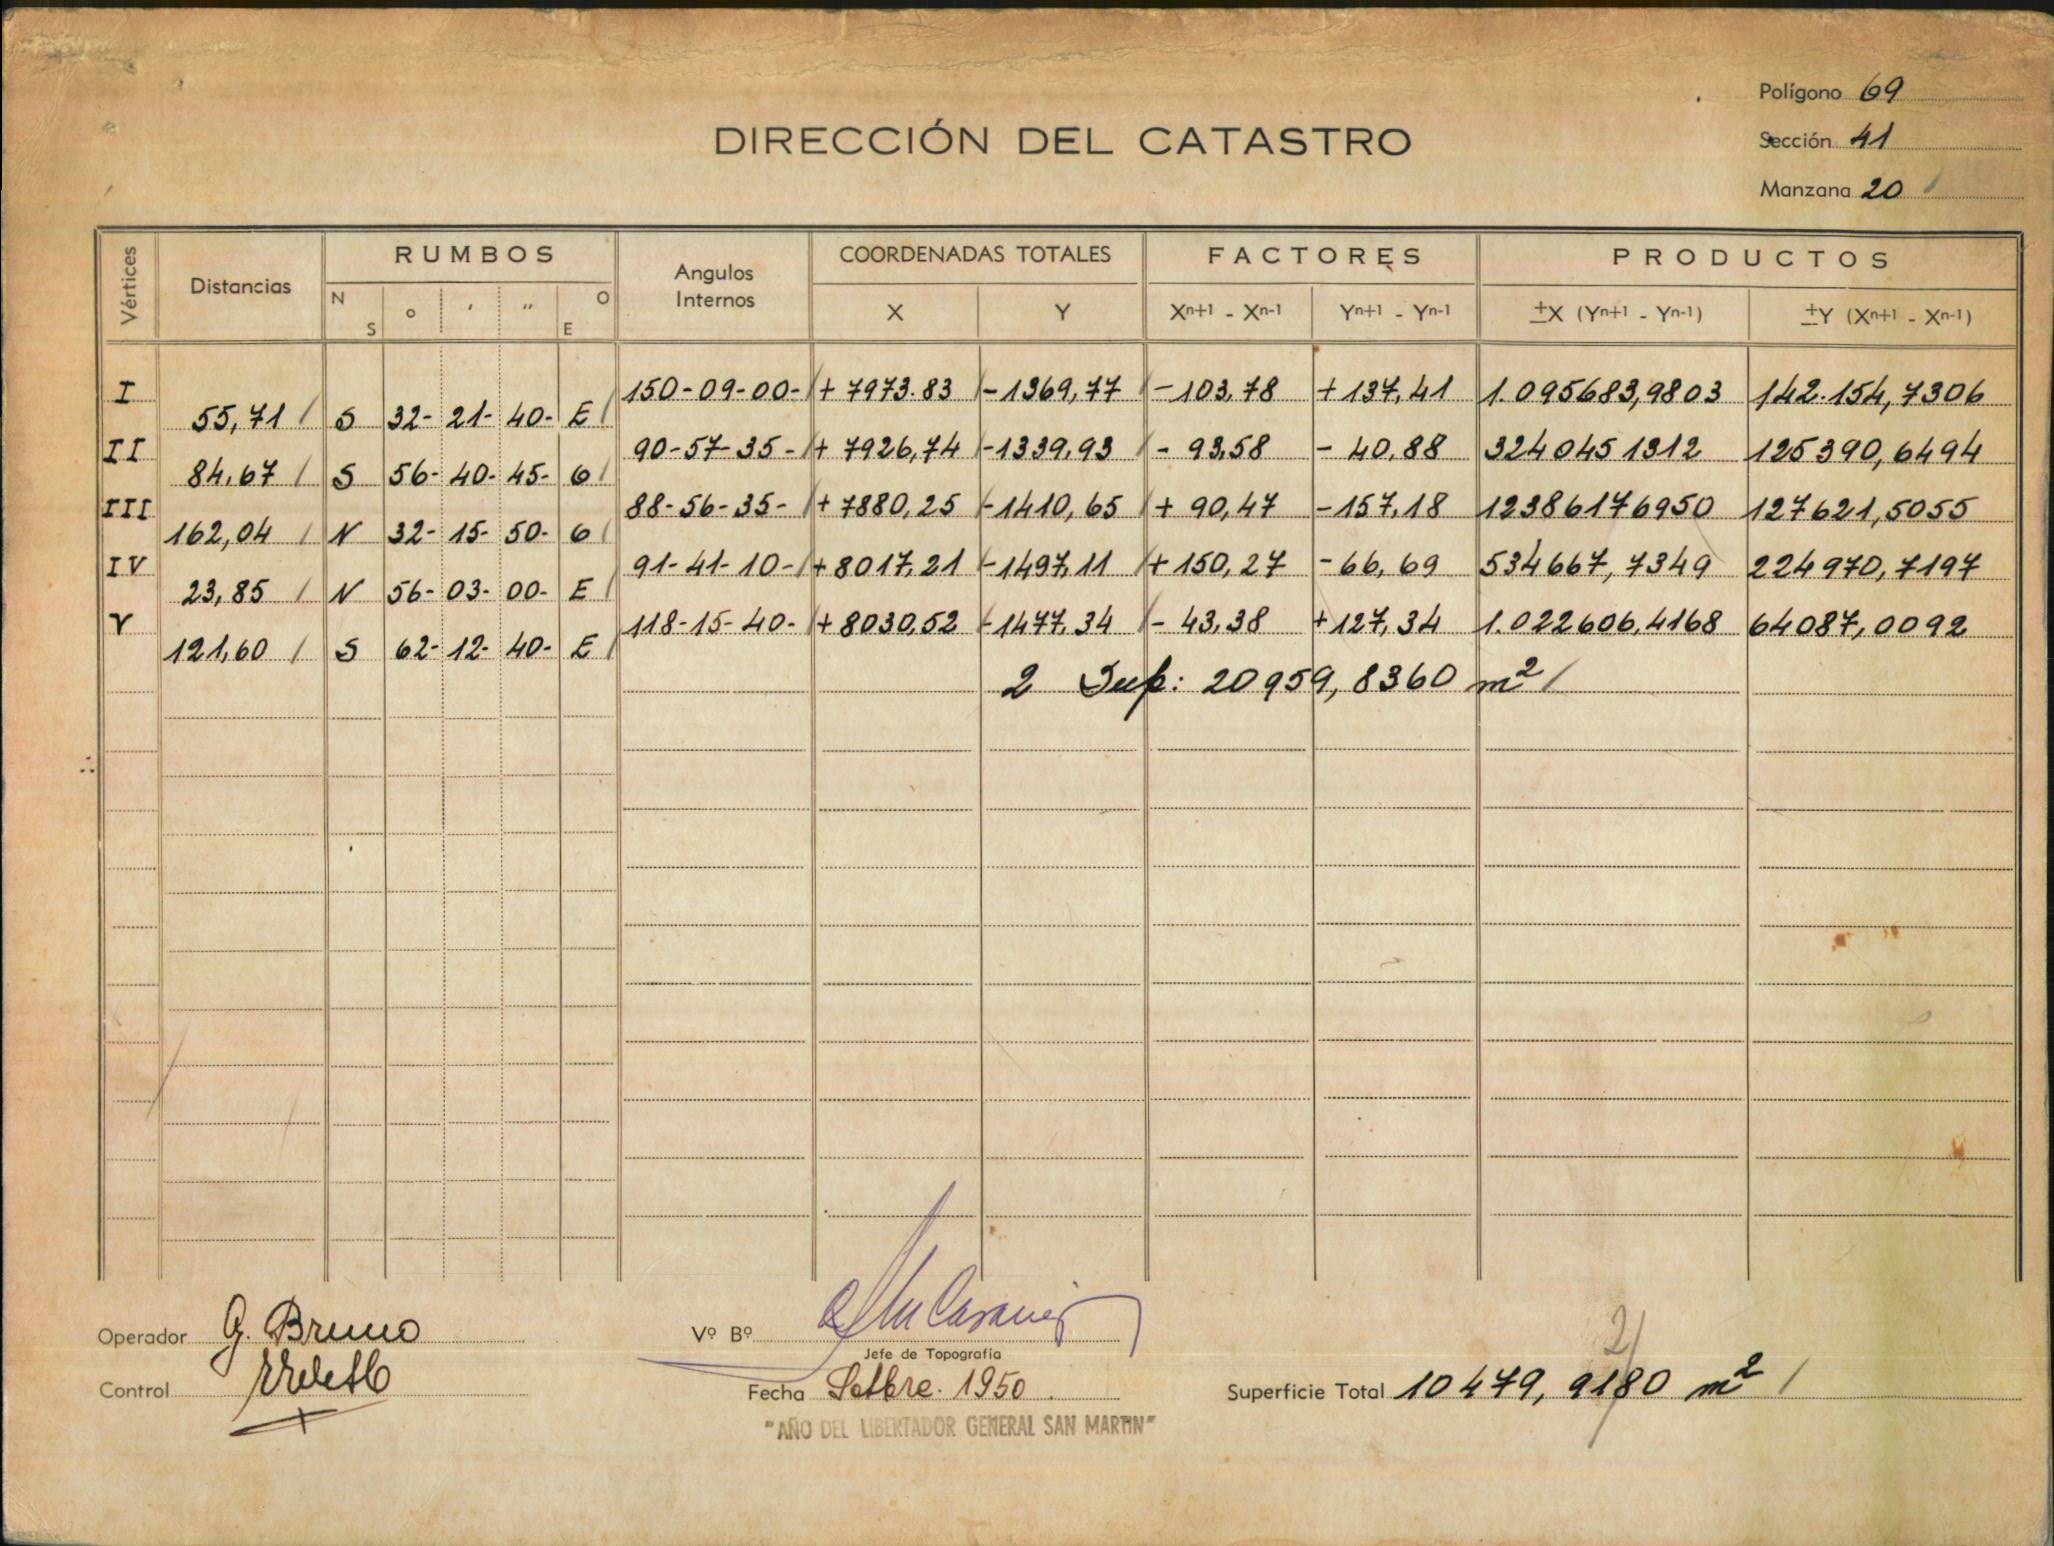 Polígono 69
DIRECCIÓN DEL CATASTRO
Sección 41
Manzana 20
Vértices Distancias RUMBOS Angulos Internos COORDENADAS TOTALES FACTORES PRODUCTOS
N S ° ' '' O E X Y Xn+1 - Xn-1 Yn+1 - Yn-1 ±X (Yn+1 - Yn-1) ±Y (Xn+1 - Xn-1)
I 150-09-00- + 7973.83 -1369,77 -103,78 +137,41 1.095683,9803 142.154,7306
55,71 S 32- 21- 40- E
II 90-57-35- + 7926,74 -1339,93 - 93,58 - 40,88 3240451312 125390,6494
84,67 S 56- 40- 45- O
III 88-56-35- + 7880,25 -1410,65 + 90,47 -157,18 12386176950 127621,5055
162,04 N 32- 15- 50- O
IV 91-41-10- +8017,21 -1497,11 +150,27 -66,69 534667,7349 224970,7197
23,85 N 56- 03- 00- E
V 118-15-40- +8030,52 -1477,34 - 43,38 +127,34 1.022606,4168 64087,0092
121,60 S 62- 12- 40- E
2 Sup: 20959,8360 m²
Operador G. Bruno
Vº Bº
Jefe de Topografía
2
Control
Fecha Setbre. 1950.
Superficie Total 10479, 9180 m²
"AÑO DEL LIBERTADOR GENERAL SAN MARTIN"